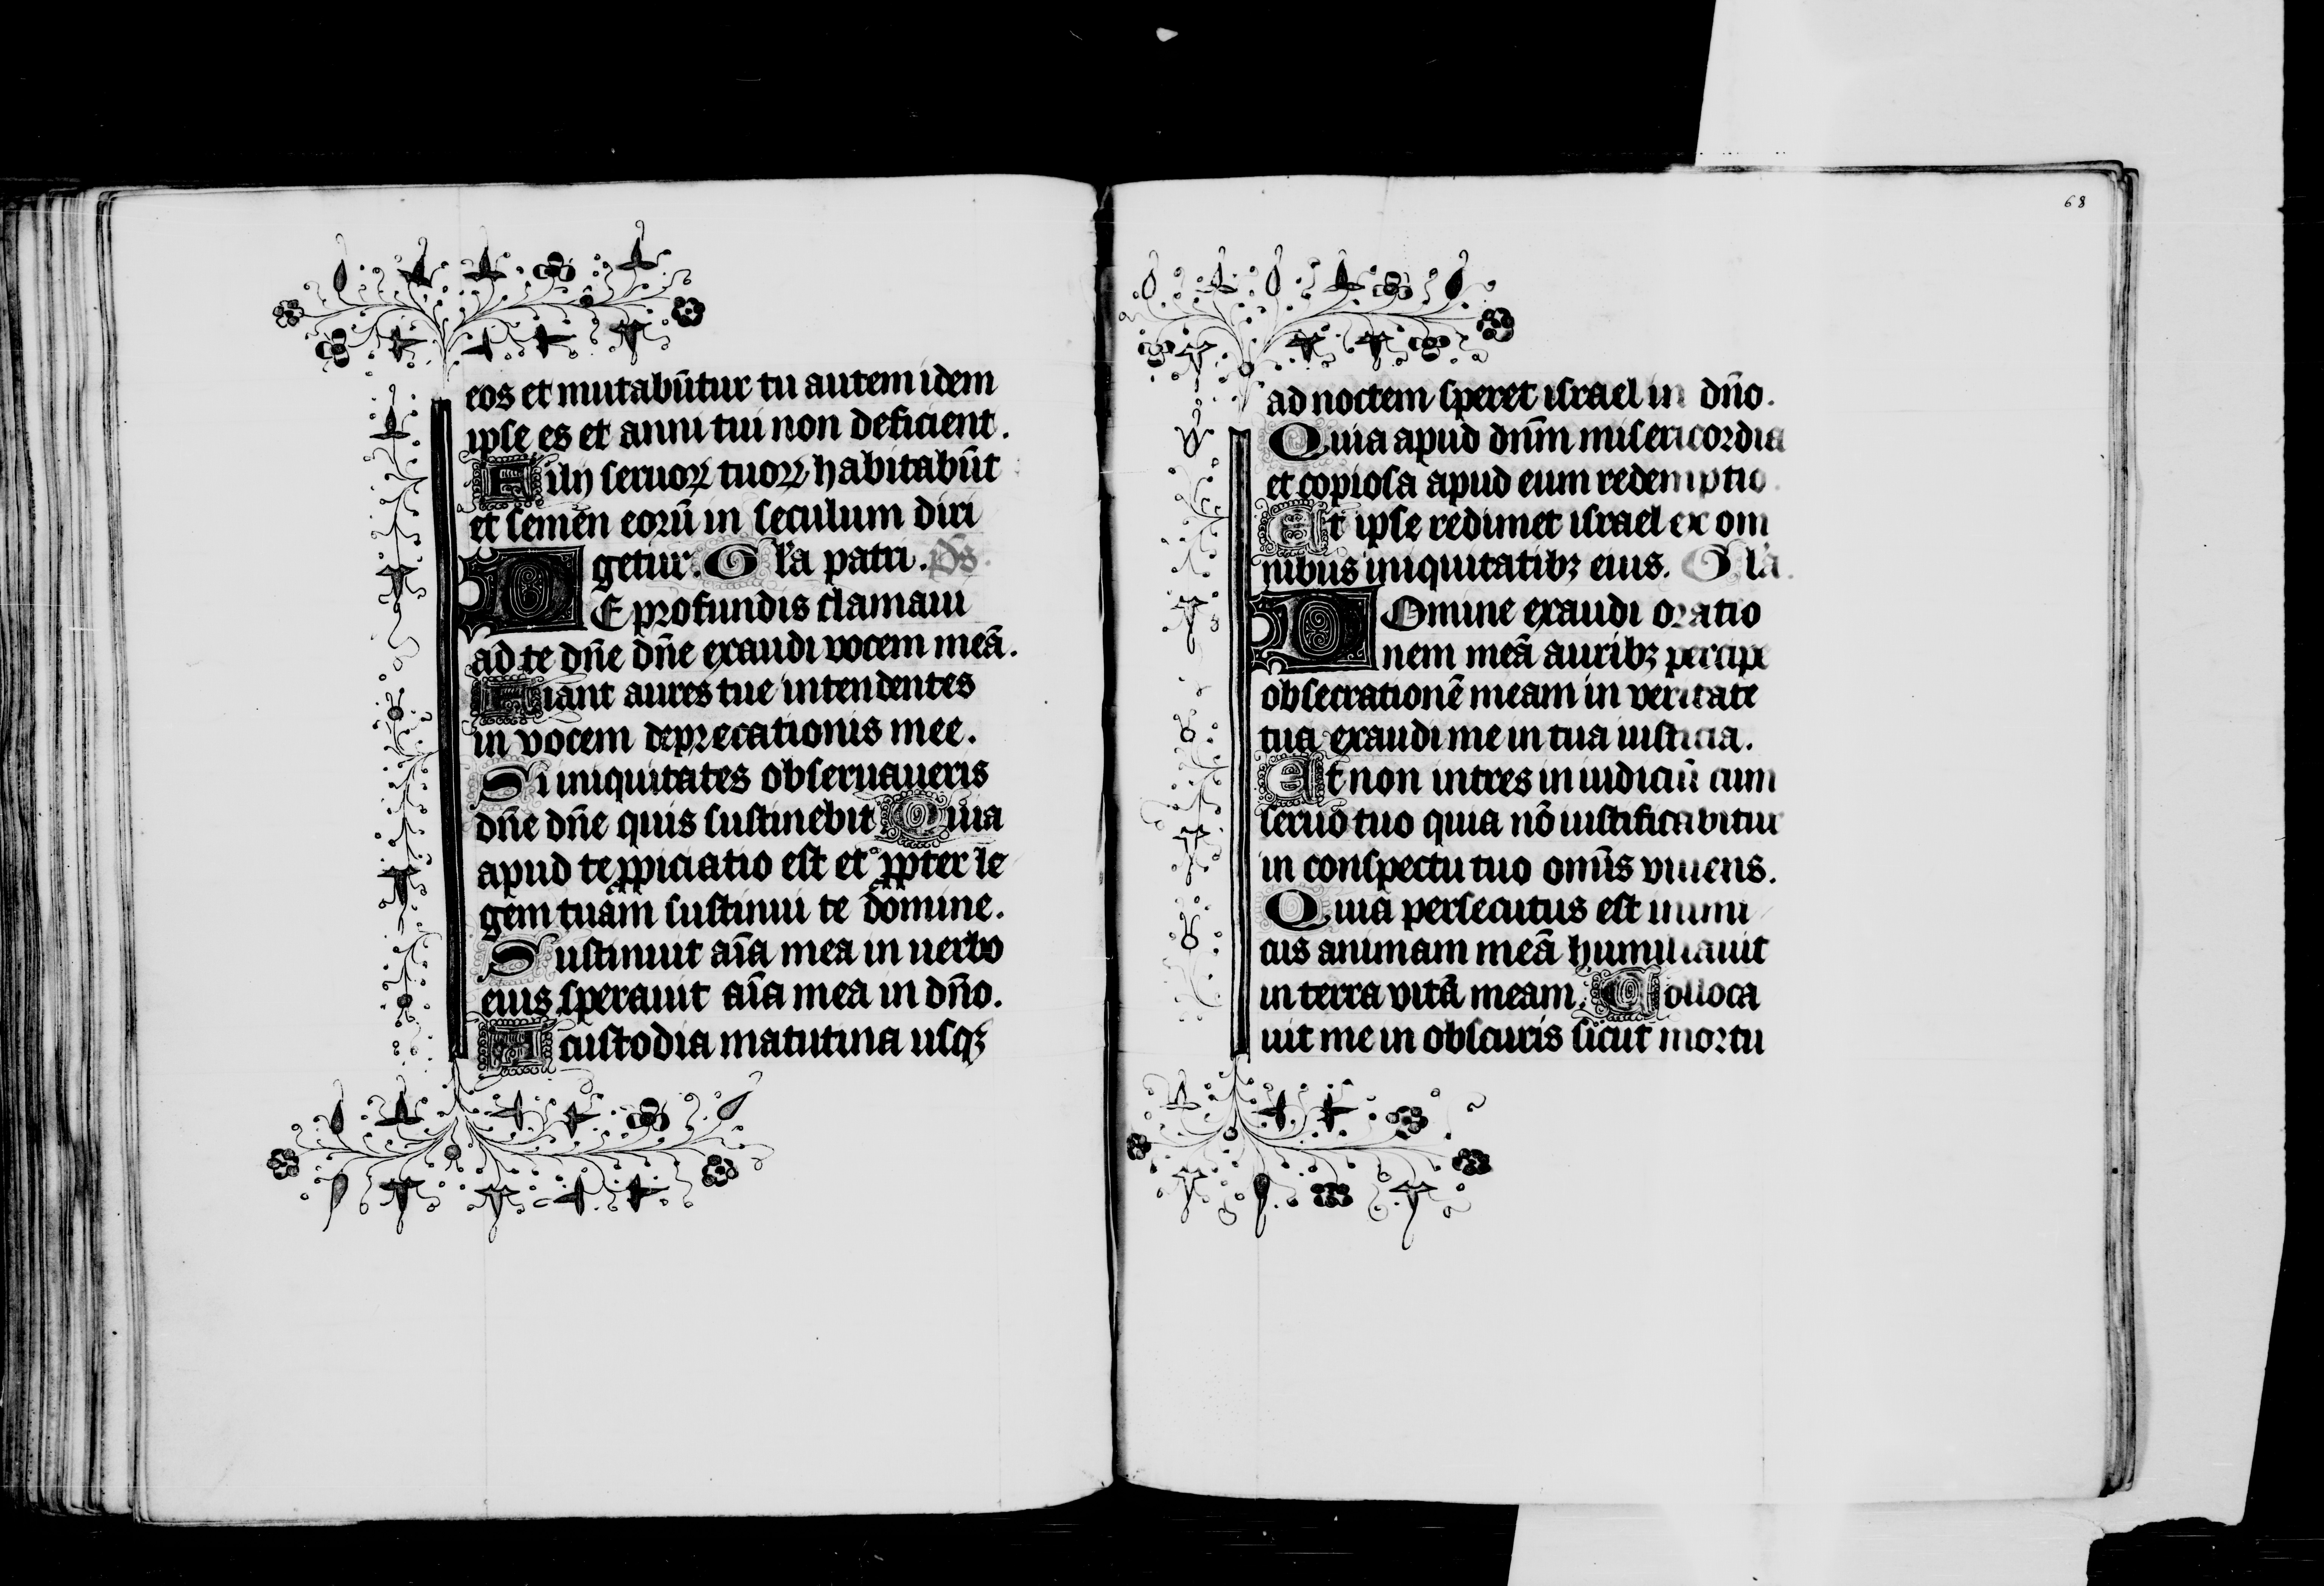 eos et mutabūtur tu autem idem
ipse es et anni tui non deficient.
Filij seruoꝝ tuoꝝ habitabūt
et semen eorū in seculum diri
getur. Gla patri. Ps.
DE profundis clamaui
ad te dñe dñe exaudi vocem meā.
Fiant aures tue intendentes
in vocem deprecationis mee.
Si iniquitates obseruaueris
dñe dñe quis sustinebit Quia
apud te ꝓpiciatio est et ꝓpter le
gem tuam sustinui te domine.
Sustinuit aīa mea in uerbo
eius sperauit aīa mea in dño.
A custodia matutina usqꝫ
68
ad noctem speret israel in dño.
Quia apud dñm misericordia
et copiosa apud eum redemptio.
Et ipse redimet israel ex om
nibus iniquitatibꝫ eius. Gla.
DOmine exaudi oratio
nem meā auribꝫ percipe
obsecrationē meam in veritate
tua exaudi me in tua iusticia.
Et non intres in iudiciū cum
seruo tuo quia nō iustificabitur
in conspectu tuo omīs viuens.
Quia persecutus est inimi
cus animam meā humiliauit
in terra vitā meam. Colloca
uit me in obscuris sicut mortu